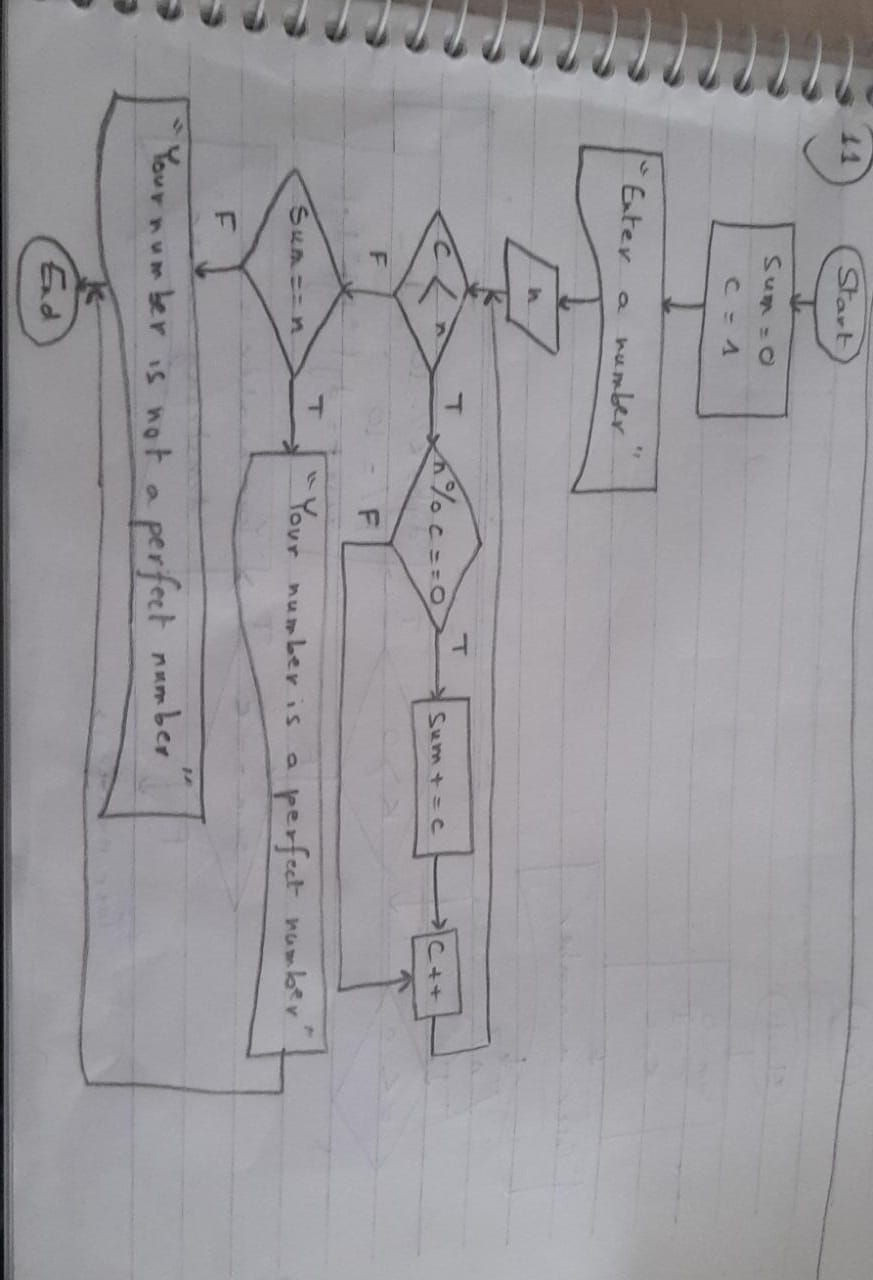 11
Start
Sum = 0
c = 1
"Enter a number"
n
c < n
T
n % c == 0
T
Sum + = c
C++
F
F
Sum == n
T
"Your number is a perfect number"
F
"Your number is not a perfect number"
End